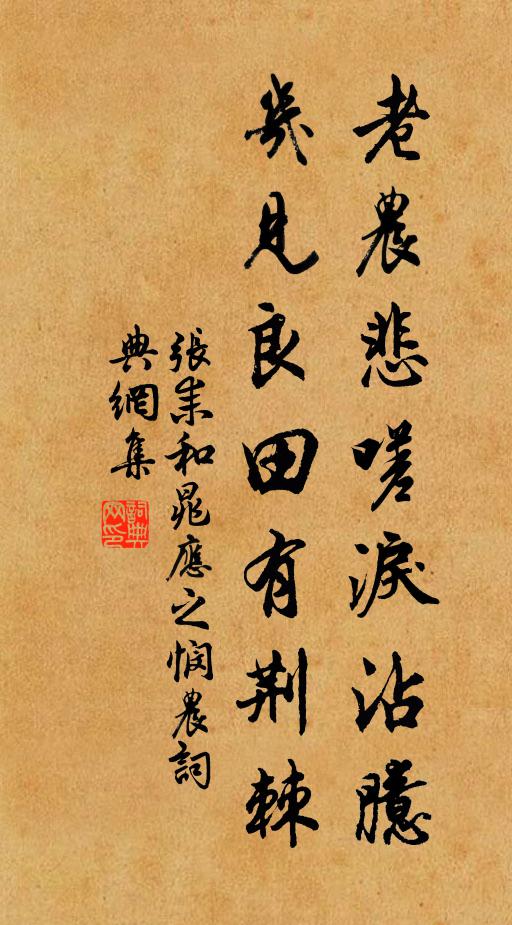 老農悲嗟淚沾臆
幾見良田有荆棘
張耒和晁應之憫農詞
典網集
詞典網印